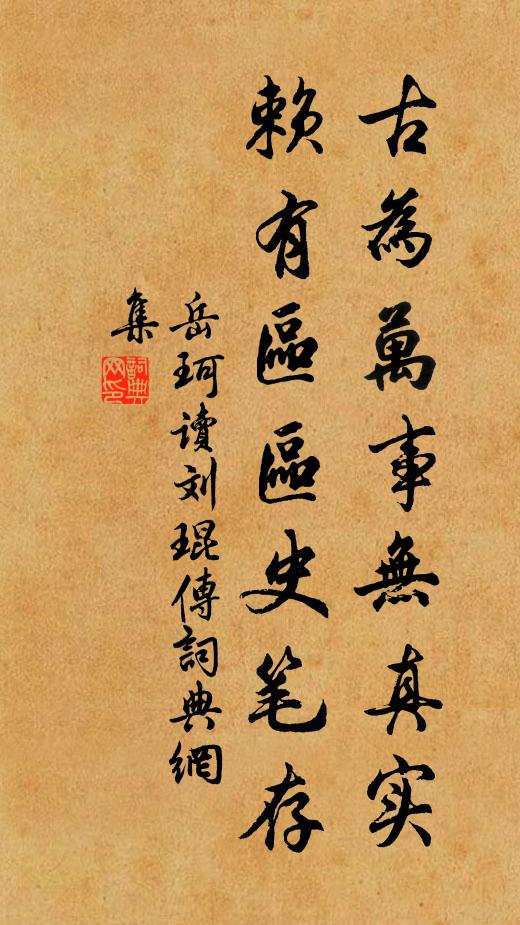 古為萬事無真实
赖有區區史笔存
岳珂读刘琨傳詞典網
集
詞典网印